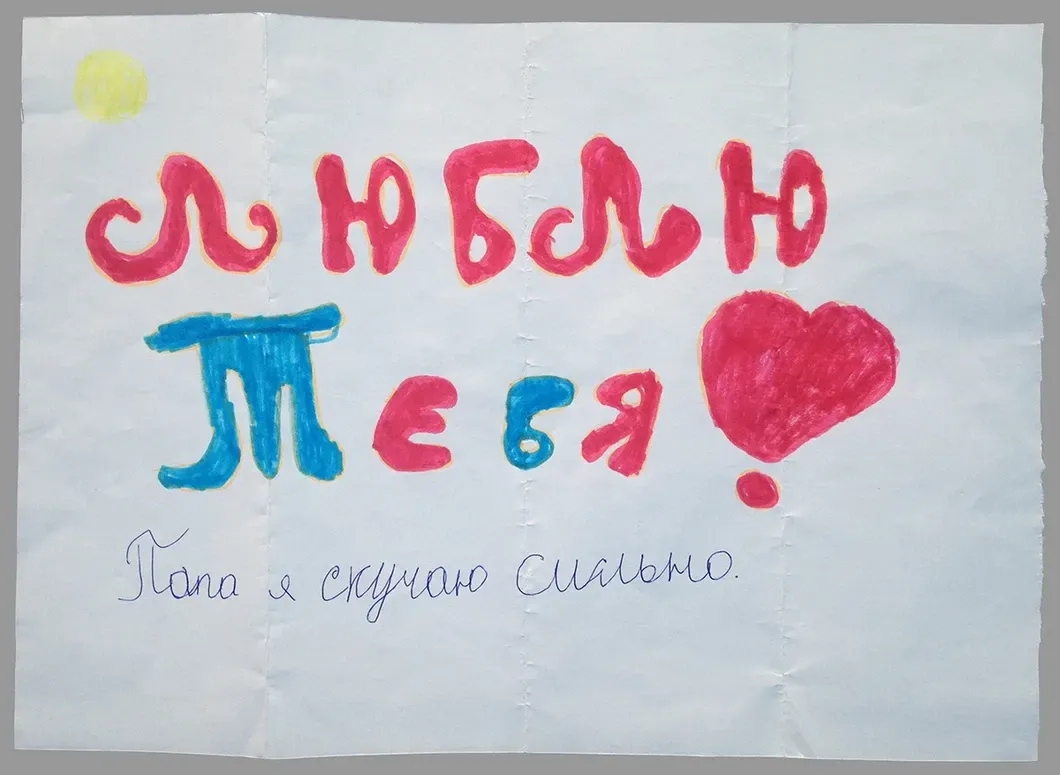 ЛЮБЛЮ
Тебя
Папа я скучаю сильно.